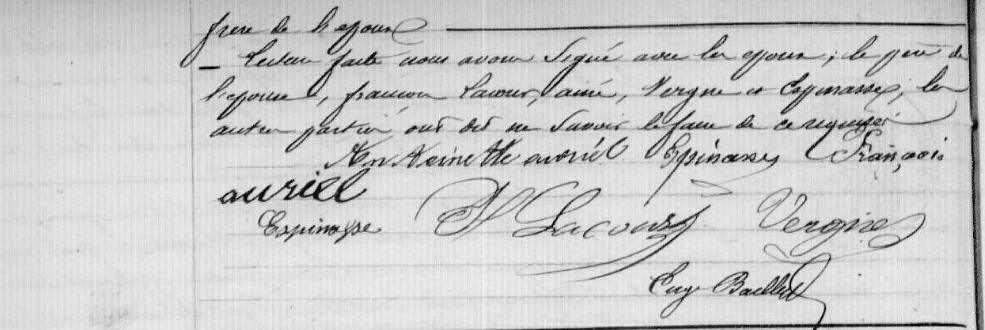 frere de l'epoux
Lecture faite nous avons signé avec les epoux ; le père de
l'epouse, françois Lacour, ainé, Vergne et Espinasse, les
autres parties ont dit ne savoir le faire de ce requises
Antoinette auriel Espinasse François
auriel
Espinasse Lacour Vergne
Baillet